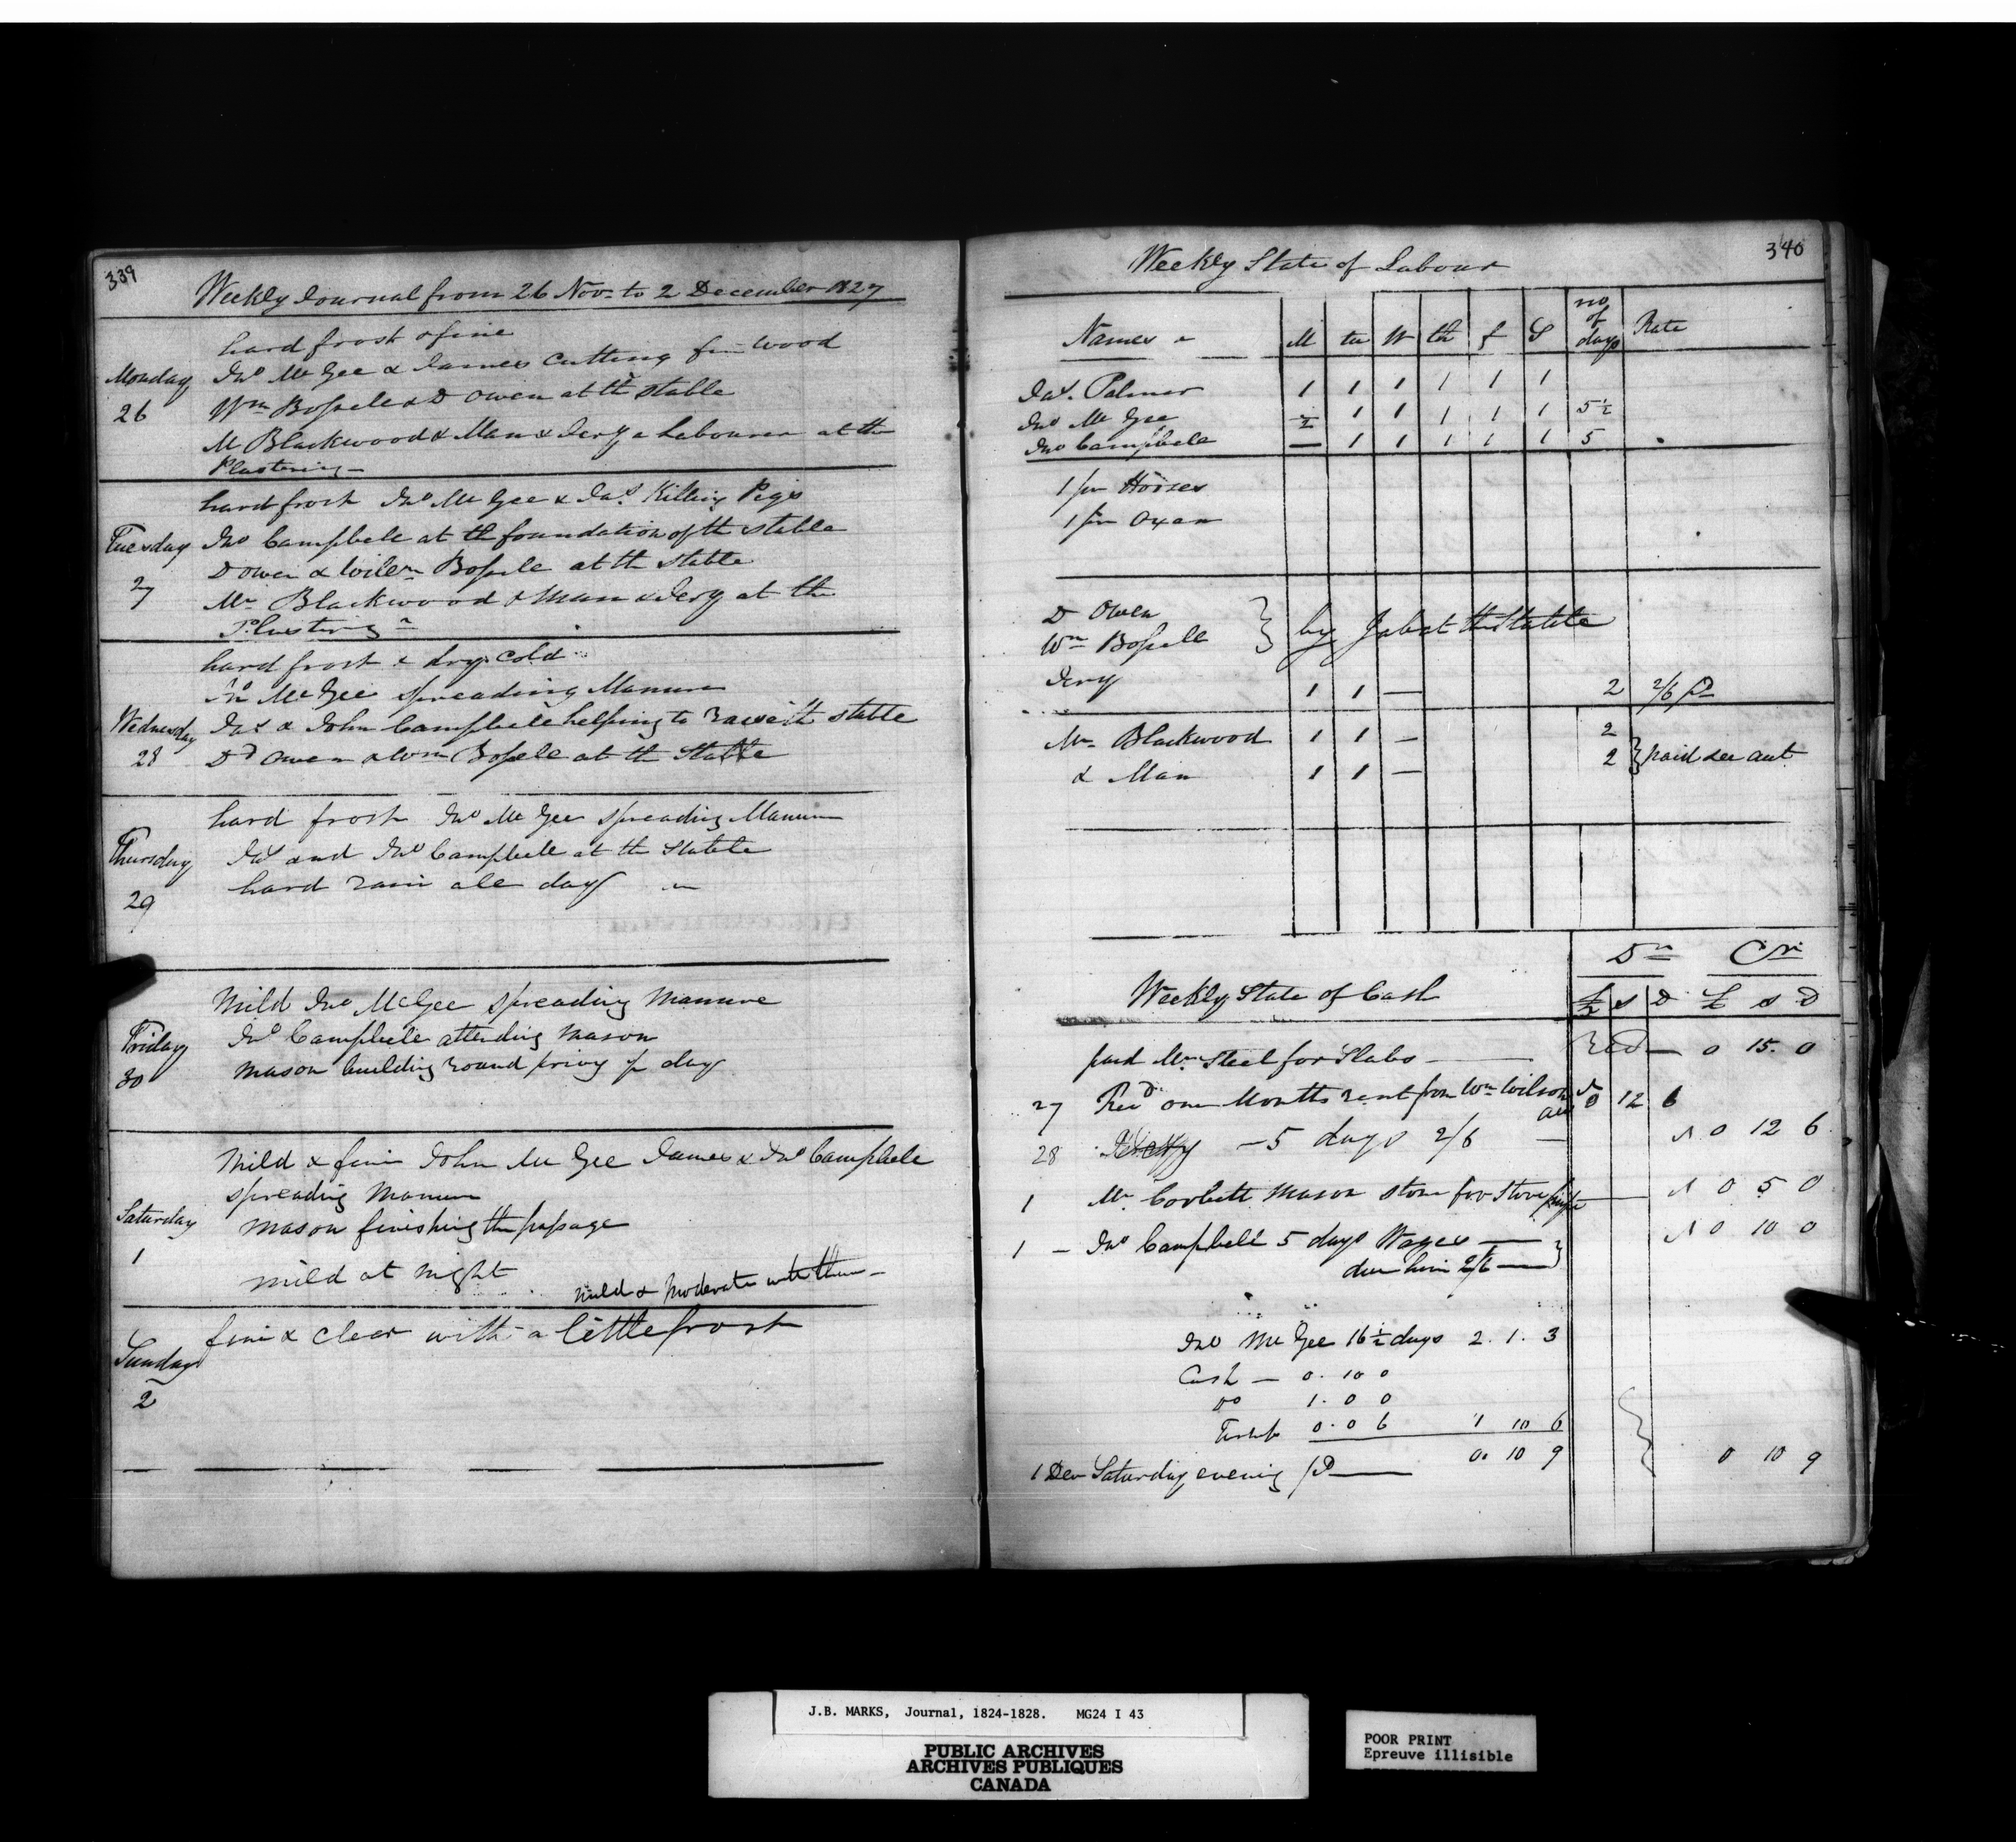 339
Weekly Journal from 26 Nov. to 2 December 1827
hard frost & fine
Monday
26
Jno McGee & James Cutting fire wood
Wm Bossele & D Owen at th stable
Mr Blackwood & Man & Jery a Labourer at the
Plastering
Tuesday
27
hard frost Jno McGee & Jas Killing Pigs
Jno Campbele at th foundation of th stable
D Owen & Willm Bossele at th stable
Mr Blackwood & Man & Jery at the
Plastering
Wednesday
28
hard frost & dry cold
Jno McGee spreading Manure
Jas & John Campbele helping to raise th stable
Dd Owen & Wm Bossele at th Stable
Thursday
29
hard frost Jno McGee spreading Manure
Jas and Jno Campbele at th Stable
hard rain ale day
Friday
30
Mild Jno McGee spreading manure
Jno Campbele attending mason
mason building round privy p day
Saturday
1
Mild & fine John McGee James & Jno Campbele
spreading Manure
mason finishing the passage
mild at night
mild & moderate
Sunday
2
fine & clear with a little frost
340
Weekly State of Labour
Names M tu W th f S no of days Rate
Jas. Palmer 1 1 1 1 1 1
Jno McGee ½ 1 1 1 1 1 5½
Jno Campbele — 1 1 1 1 1 5
1 pr Horses
1 pr Oxen
D Owen
Wm Bossele } by Job at th Stable
Jery 1 1 — 2 2/6 Pd
Mr Blackwood 1 1 — 2
& Man 1 1 — 2 } paid see act
Dr Cr
Weekly State of Cash £ s D £ s D
paid Mr Steel for Slabs — 0 15. 0
27 Recd one Months rent from Wm Wilson 0 12 6
28 — 5 days 2/6 — 0 12 6
1 Mr Corbett mason stone for stove pipe — 0 5 0
1 — Jno Campbell 5 days Wages — 0 10 0
due him 2/6 — }
Jno McGee 16½ days 2. 1. 3
Cash — 0. 10 0
Do 1. 0 0
0. 0 6 1 10 6
0. 10 9
1 Decr Saturday evening Pd — 0 10 9
J.B. MARKS, Journal, 1824-1828. MG24 I 43
PUBLIC ARCHIVES
ARCHIVES PUBLIQUES
CANADA
POOR PRINT
Epreuve illisible